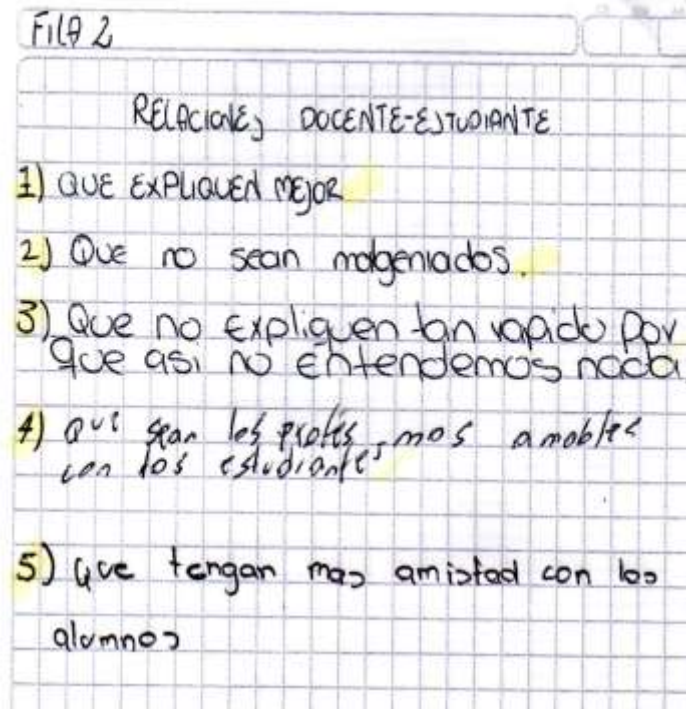 FILA 2
RELACIONES DOCENTE-ESTUDIANTE
1) QUE EXPLIQUEN MEJOR
2) Que no sean malgeniados.
3) Que no expliquen tan rapido por
que asi no entendemos nada
4) que sean los profes mas amables
con los estudiantes
5) que tengan mas amistad con los
alumnos